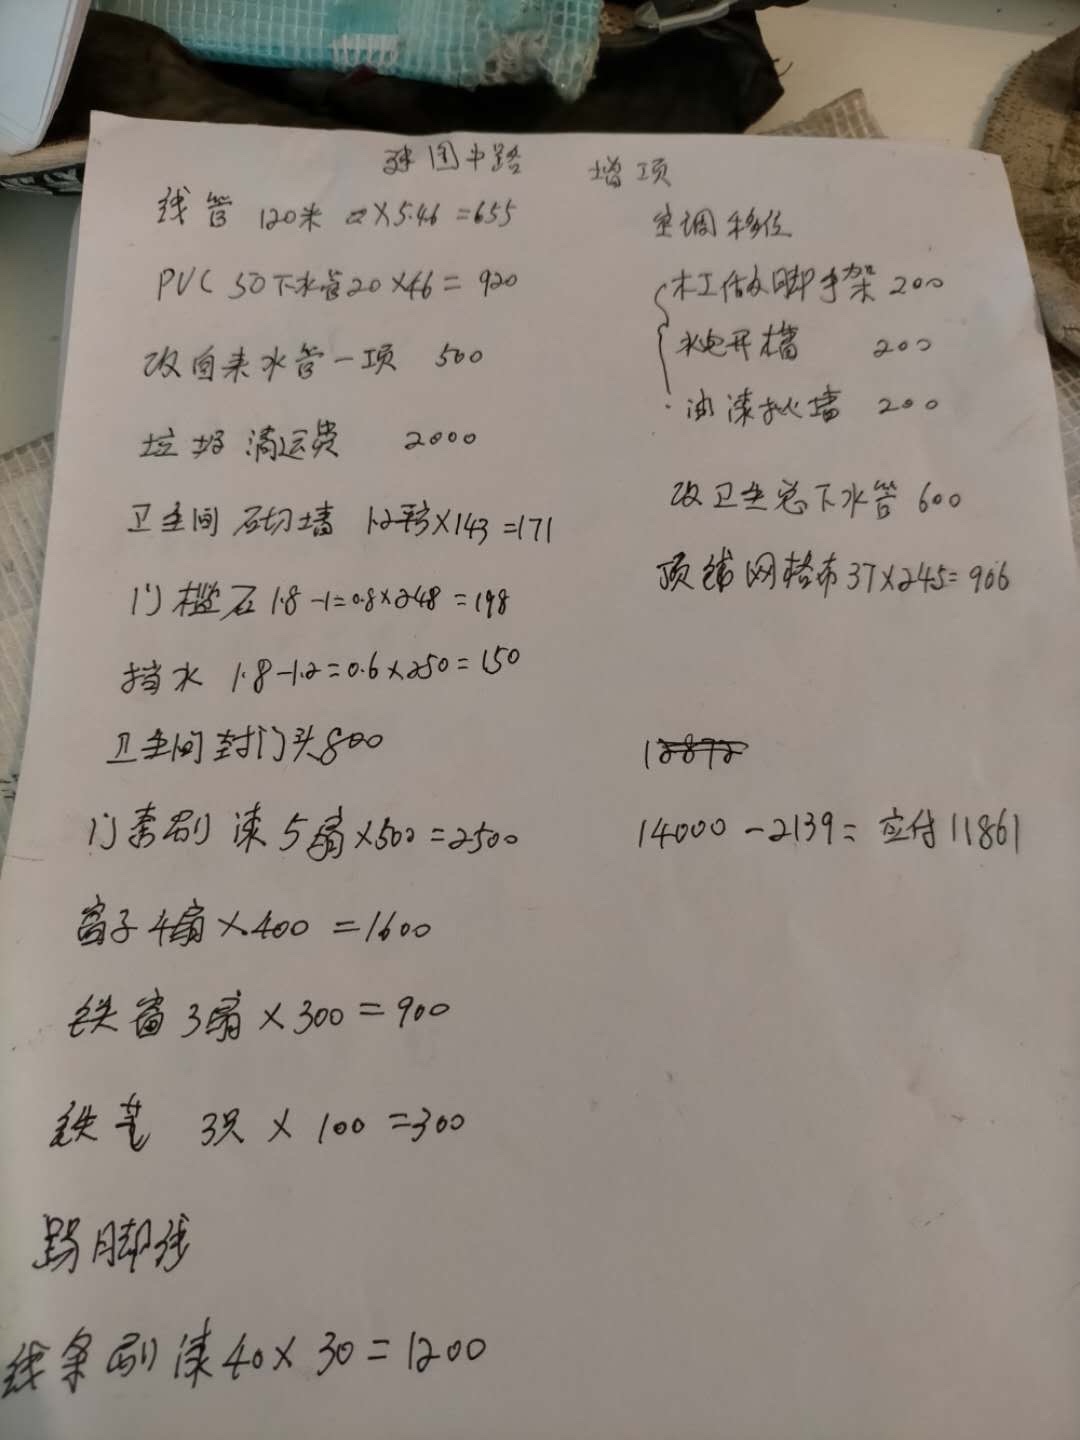 图中路 增项
线管 120米 × 5.46 = 655
PVC 50下水管20×46 = 920
改自来水管一项 500
垃圾清运费 2000
卫生间砌墙 1.2平方×143=171
门槛石1.8-1=0.8×248=198
挡水 1.8-1.2=0.6×250=150
卫生间封门头800
门套刷漆5扇×500=2500
窗子4扇×400=1600
铁窗3扇×300=900
铁 3只×100=300
踢脚线
线条刷漆40×30=1200
空调移位
木工做脚手架 200
水电开槽 200
油漆 墙 200
改卫生 下水管 600
顶铺网格布37×24.5=906
12872
14000-2139=应付11861